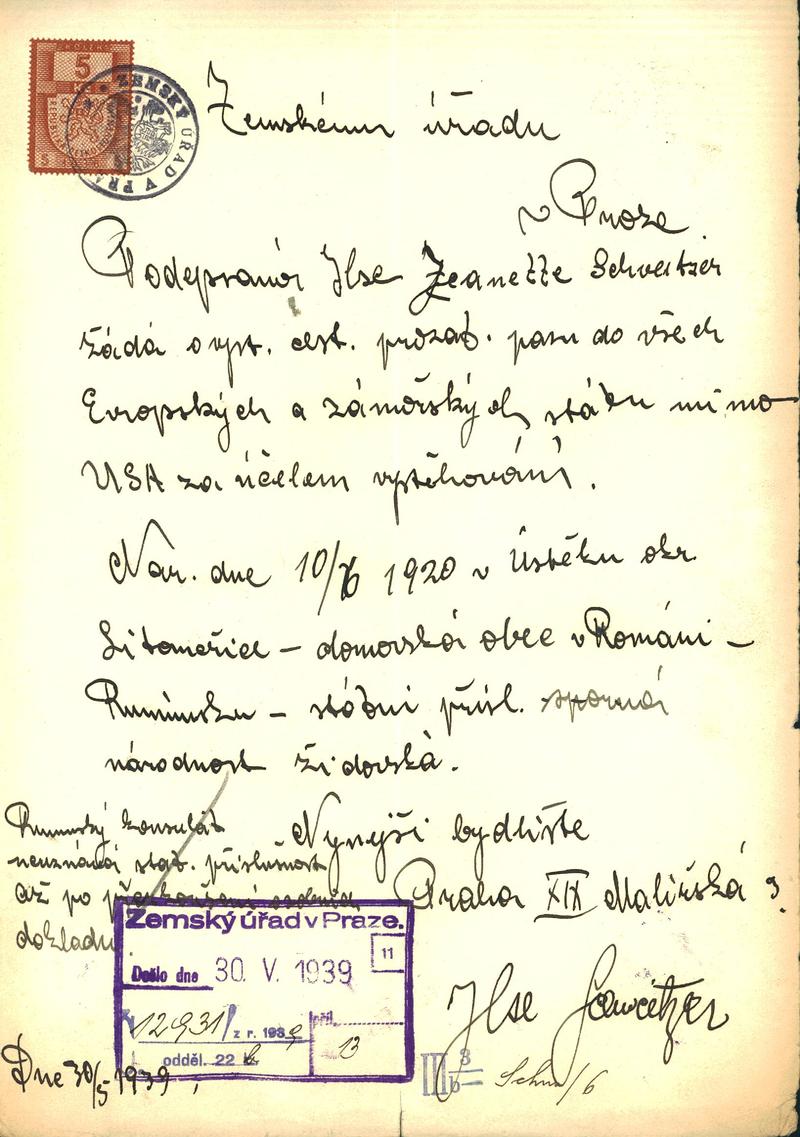 5
ZEMSKÝ ÚŘAD V PRAZE
Zemskému úřadu
v Praze
Podepsaná Ilse Jeanette Schweitzer
žádá o vyst. cest. prozat. pasu do všech
Evropských a zámořských států mimo
USA za účelem vystěhování.
Nar. dne 10/ 1920 v Úštěku okr.
Litoměřice – domovská obec v Románi –
Rumunsku – státní přísl. sporná
národnost židovská.
Rumunský konsulát
neuznává stát. příslušnost
až po přezkoušení
dokladů
Nynější bydliště
Praha XIX Malířská 3.
Zemský úřad v Praze.
11
Došlo dne 30. V. 1939
12931/ z r. 1939
příl.
13
odděl. 22 b
Ilse Schweitzer
Dne 30/5 1939
III 3
b
/6